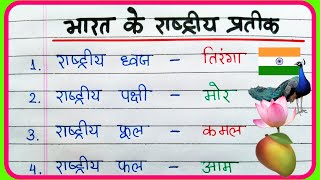 भारत के राष्ट्रीय प्रतीक
1. राष्ट्रीय ध्वज - तिरंगा
2. राष्ट्रीय पक्षी - मोर
3. राष्ट्रीय फूल - कमल
4. राष्ट्रीय फल - आम